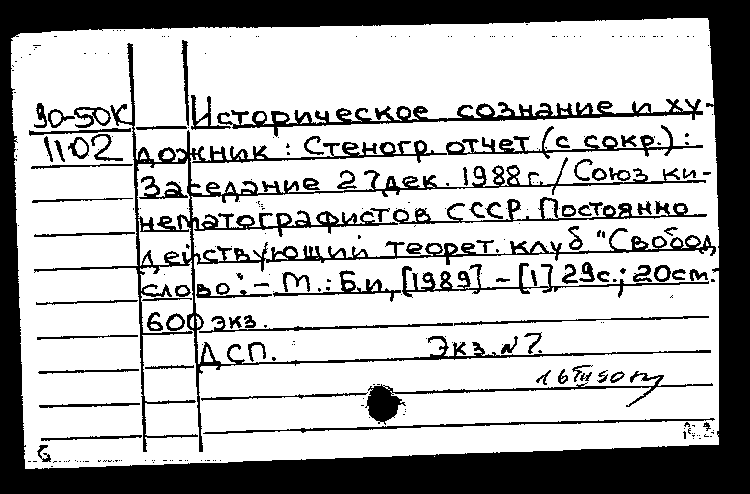 90-50К
1102
Историческое сознание и ху-
дожник : Стеногр. отчет (с сокр.) :
Заседание 27 дек. 1988 г. / Союз ки-
нематографистов СССР. Постоянно
действующий теорет. клуб "Свобод.
слово". - М. : Б.и., [1989] - [1], 29 с. ; 20 см. -
600 экз.
ДСП. Экз. №7.
Б